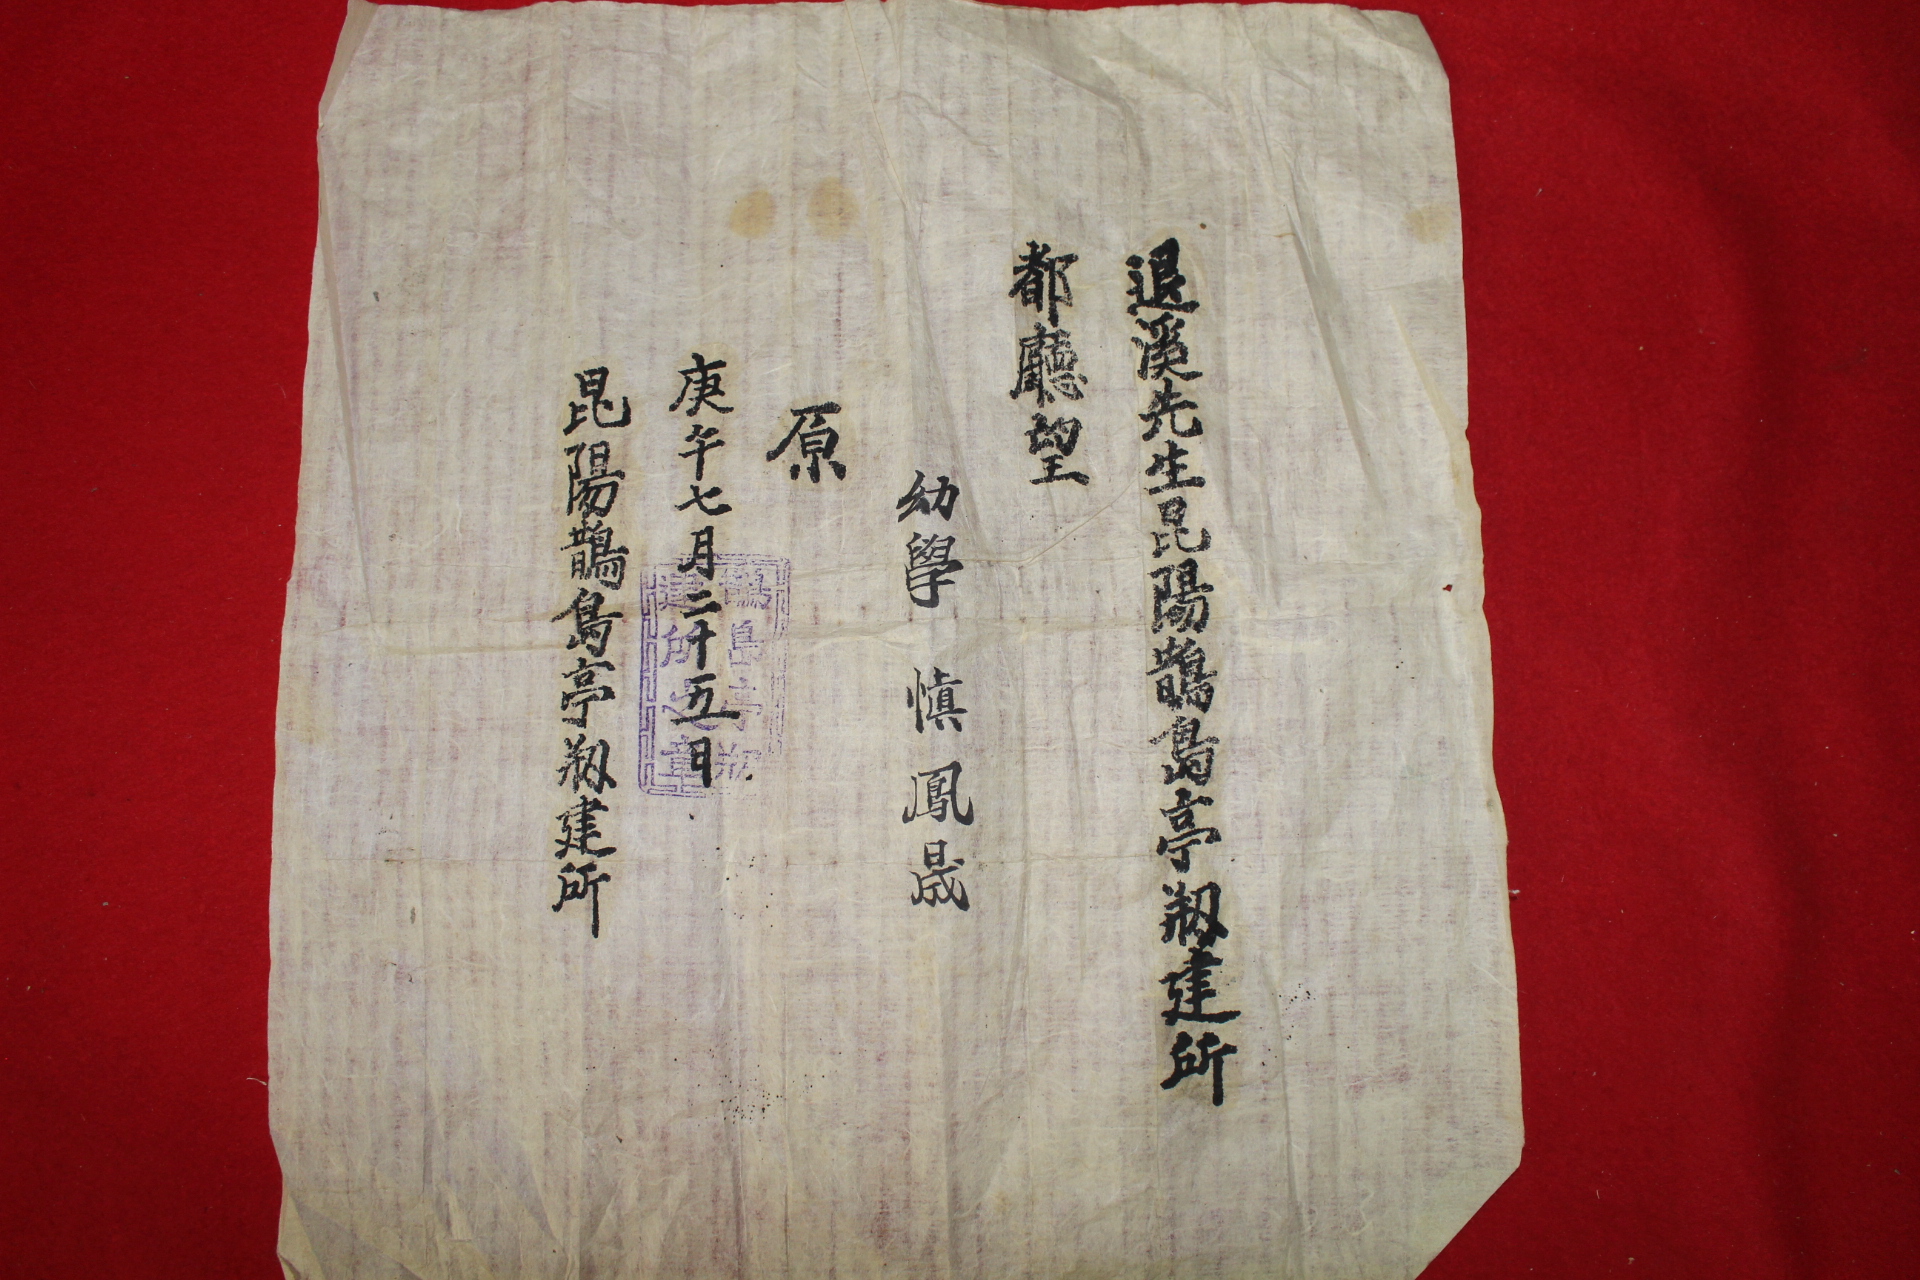 退溪先生昆陽鵲島亭刱建所
都廳望
幼學 愼鳳晟
原
庚午七月二十五日
昆陽鵲島亭刱建所
鵲島亭刱
建所之章